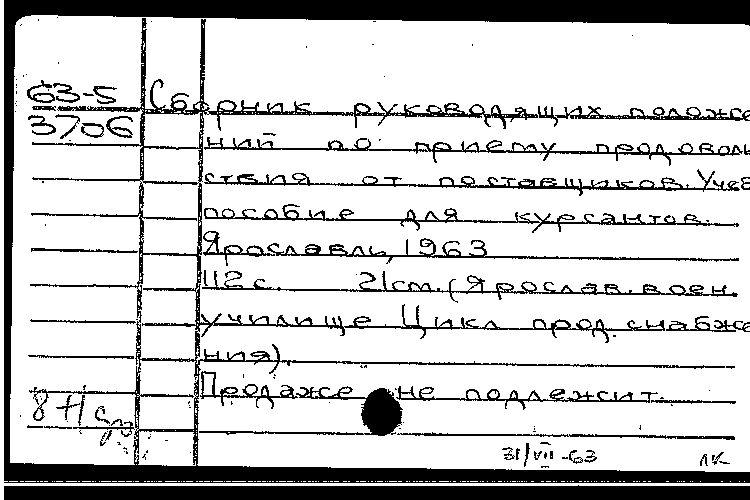 63-5 Сборник руководящих положе
3706 ний по приему продоволь
ствия от поставщиков. Учеб
пособие для курсантов.
Ярославль, 1963
112 с. 21 см. (Ярослав. воен.
училище Цикл прод. снабже
ния).
Продаже не подлежит.
31/VII-63 ЛК